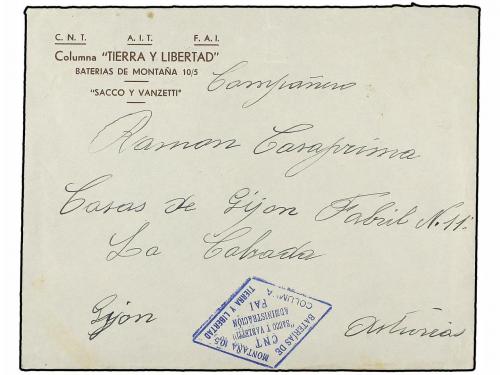 C. N. T. A. I. T. F. A. I.
Columna "TIERRA Y LIBERTAD"
BATERIAS DE MONTAÑA 10/5
"SACCO Y VANZETTI"
Compañero
Ramon Casaprima
Casas de Gijon Fabril N. 11.
La Calzada
Gijon Asturias
BATERÍAS DE MONTAÑA 10/5
CNT FAI
"SACCO Y VANZETTI"
ADMINISTRACIÓN
COLUMNA TIERRA Y LIBERTAD